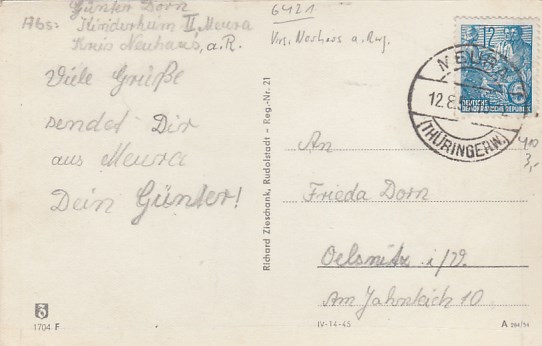 Günter Dorn
Abs: Kinderheim II, Meura
Kreis Neuhaus, a. R.
6421
Viele Grüße
sendet Dir
aus Meura
Dein Günter!
Richard Zieschank, Rudolstadt - Reg.-Nr. 21
12
DEUTSCHE
DEMOKRATISCHE REPUBLIK
MEURA
12.8.5
(THÜRINGERW.)
3,-
An
Frieda Dorn
Oelsnitz i/V.
Am Jahnteich 10
1704 F
IV-14-45
A